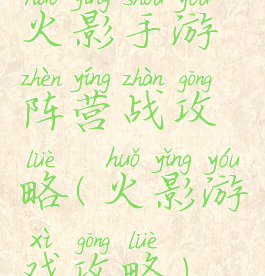 huǒ yǐng shǒu yóu
火影手游
zhèn yíng zhàn gōng
阵营战攻
lüè huǒ yǐng yóu
略(火影游
xì gōng lüè
戏攻略)